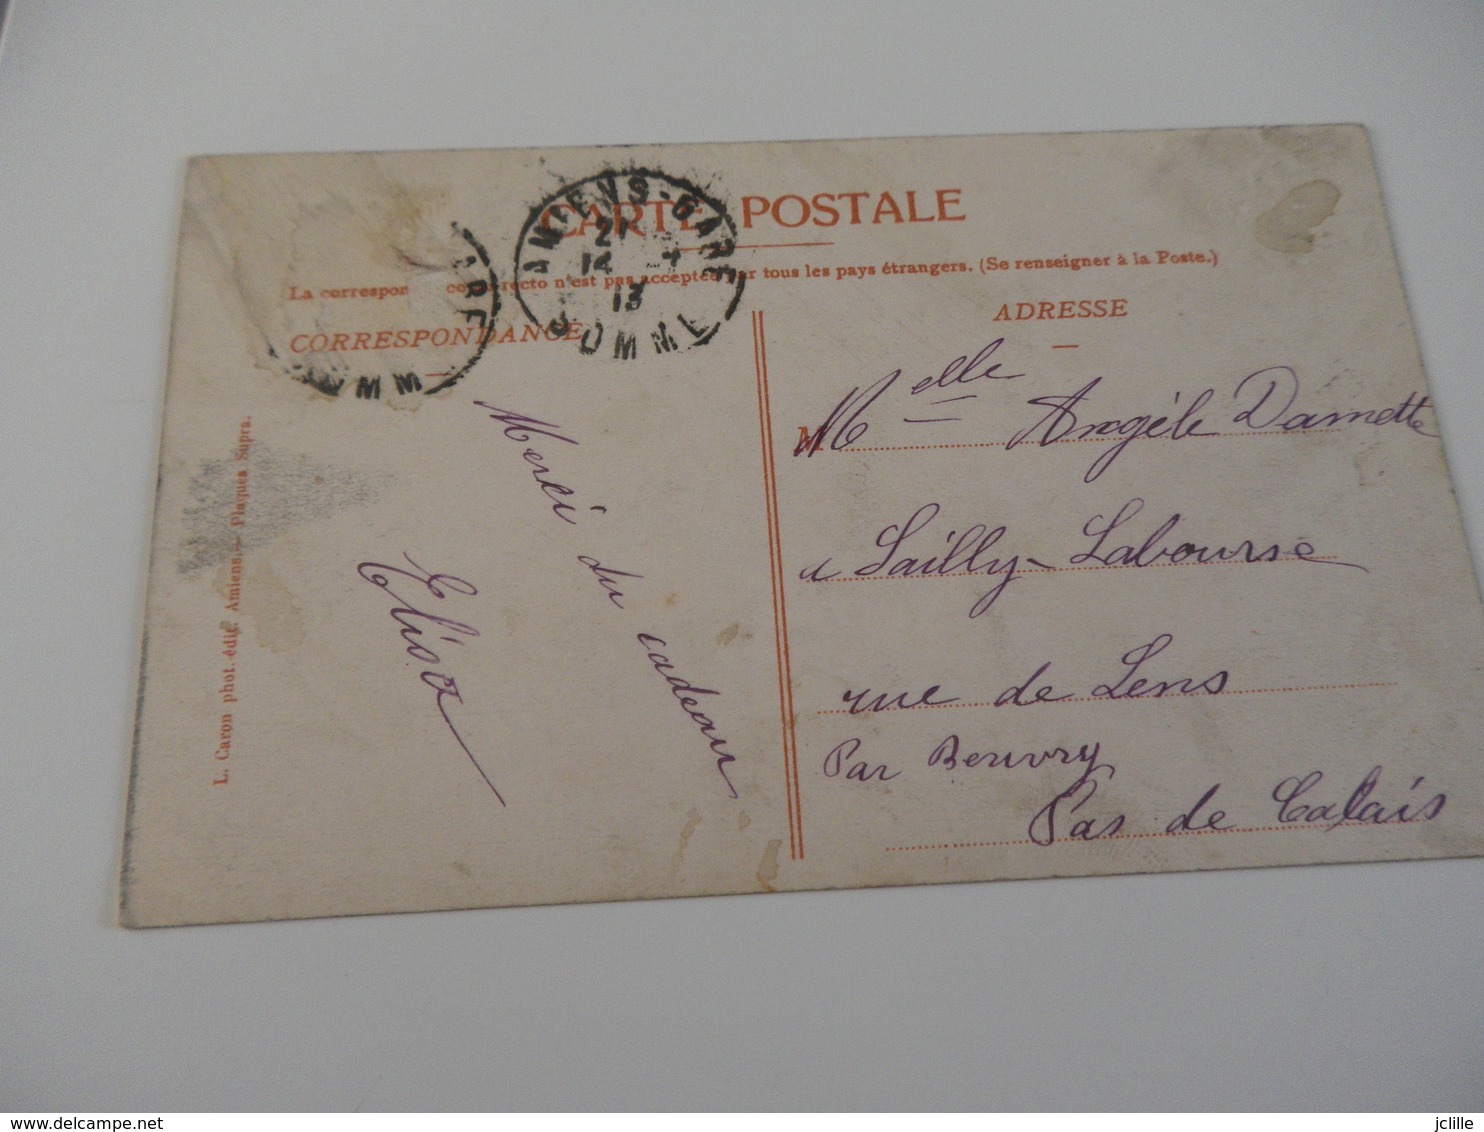 CARTE POSTALE
La correspon au recto n'est pas acceptée par tous les pays étrangers. (Se renseigner à la Poste.)
AMIENS-GARE
21
14 - 7
13
SOMME
ARE
MM
CORRESPONDANCE
ADRESSE
L. Caron phot. édit. Amiens. - Plaques Supra.
Merci du cadeau
Elisa
M Melle Angèle Damette
à Sailly-Labourse
rue de Lens
Par Beuvry
Pas de Calais
delcampe.net
jclille